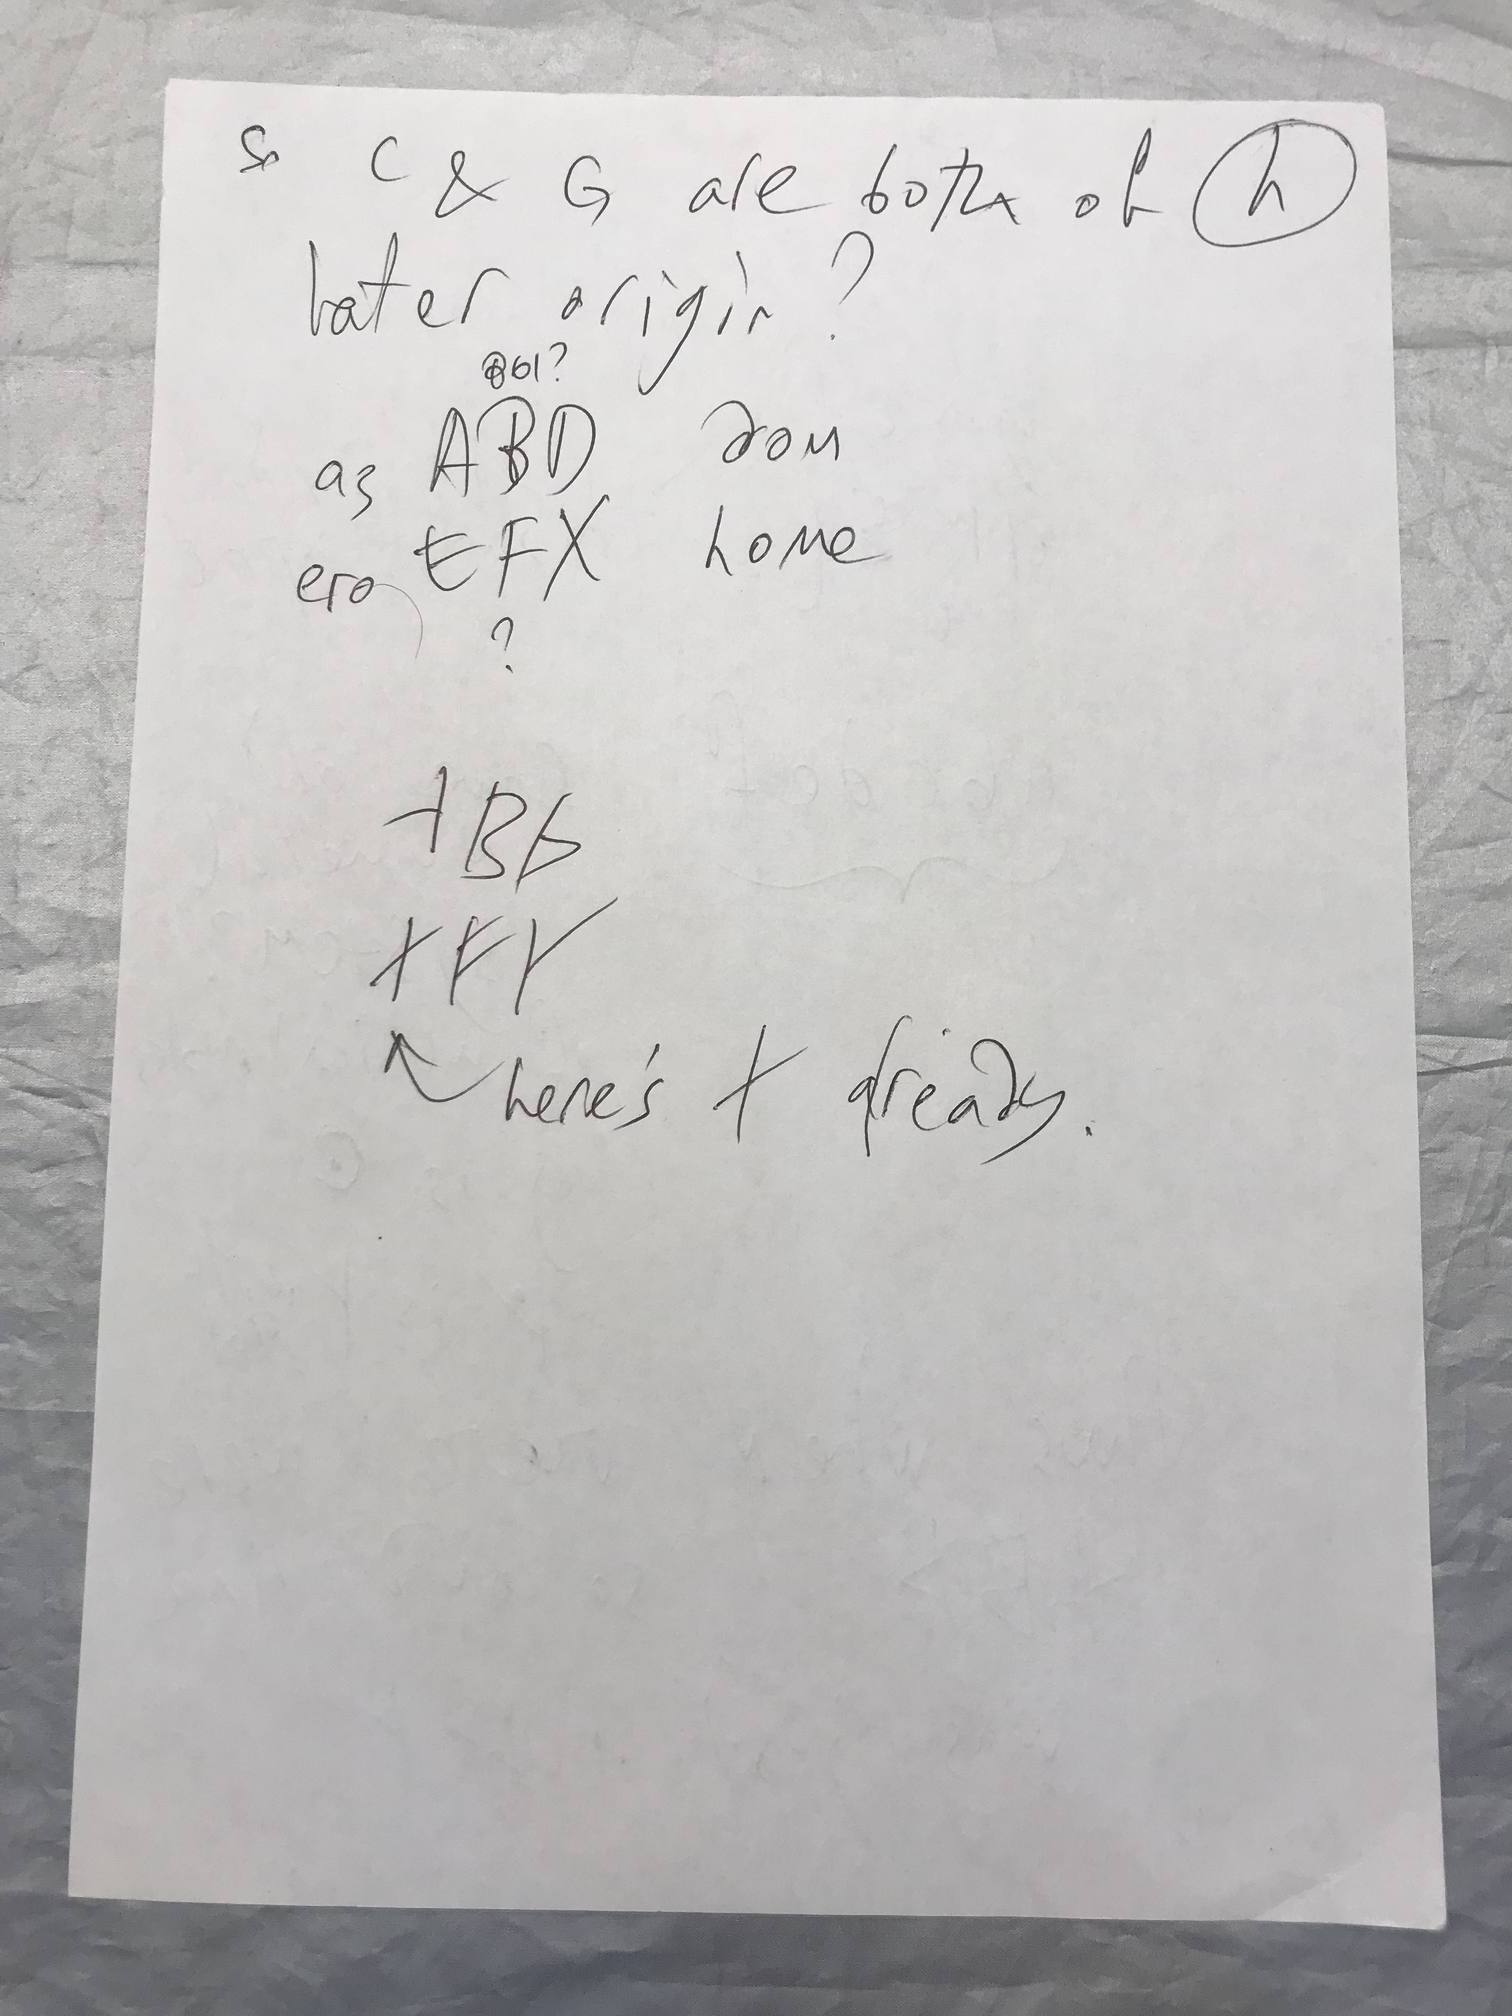 so C & G are both of h
later origin?
001?
as ABD дом
ero EFX home
?
+Bb
+FY
here's + already.